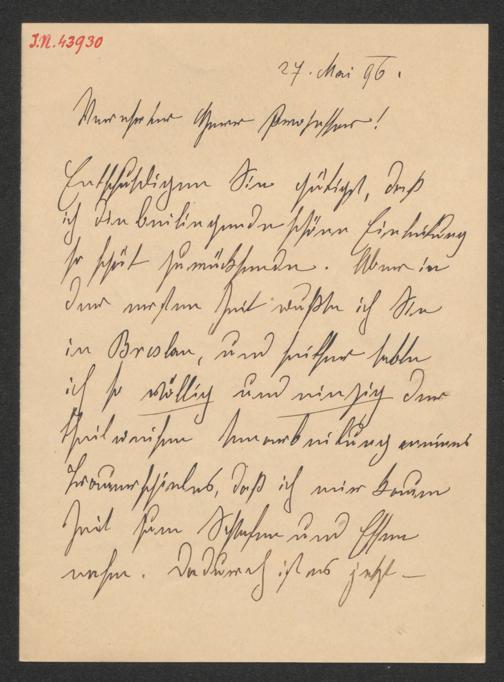 J.N. 43930
27. Mai 96.
Verehrter Herr Professor!
Entschuldigen Sie gütigst, daß
ich die beiliegende schöne Einleitung
so spät zurücksende. Aber in
der ersten Zeit wußte ich Sie
in Breslau, und seither lebte
ich so völlig und einzig der
theilweisen Umarbeitung meines
Trauerspieles, daß ich mir kaum
Zeit zum Schlafen und Essen
nahm. Dadurch ist es jetzt –